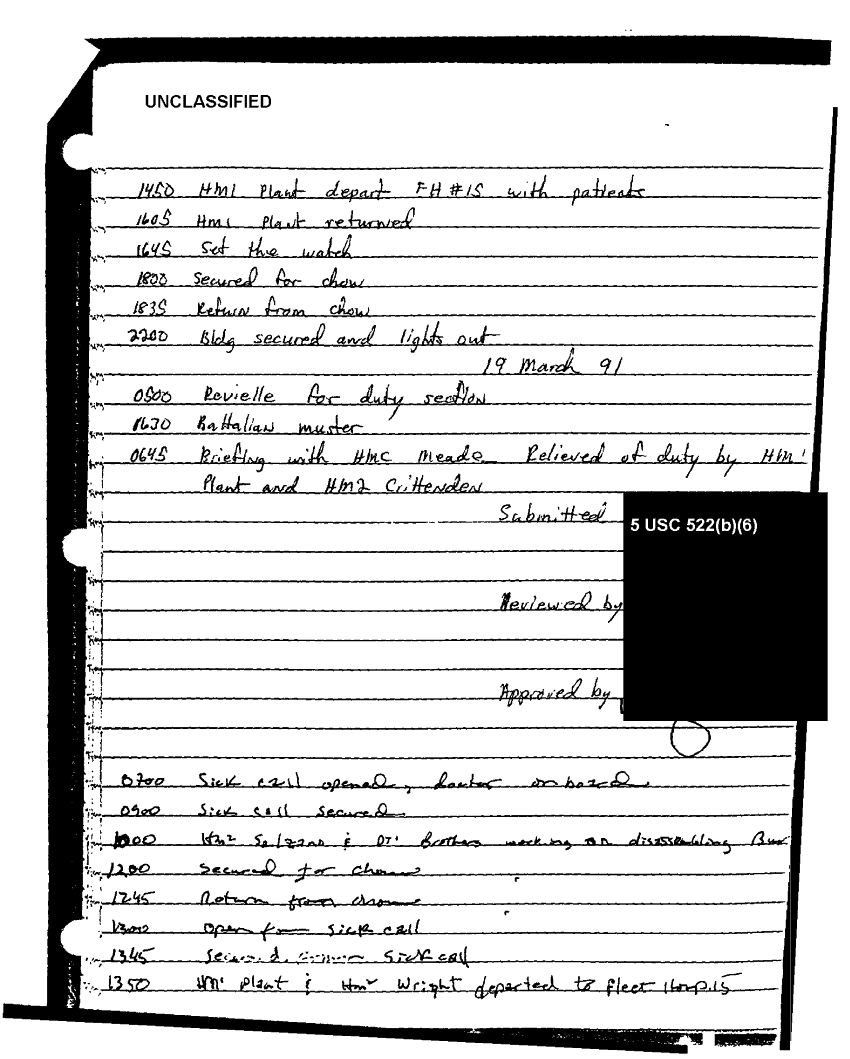 UNCLASSIFIED
1450 HM1 Plant depart FH #15 with patients
1605 HM1 Plant returned
1645 Set the watch
1800 Secured for chow
1835 Return from chow
2200 Bldg secured and lights out
19 March 91
0500 Revielle for duty section
0630 Battalian muster
0645 Briefing with HMC Meade Relieved of duty by HM1
Plant and HM2 Crittenden
Submitted
5 USC 522(b)(6)
Reviewed by
Approved by
0700 Sick call opened, doctor on board
0900 Sick call secured
1000 HM2 & DT1 Brothers working on disassembling
1200 Secured for chow
1245 Return from chow
1300 Open for sick call
1345 Secured sick call
1350 HM1 Plant & HM2 Wright departed to fleet Hosp. 15